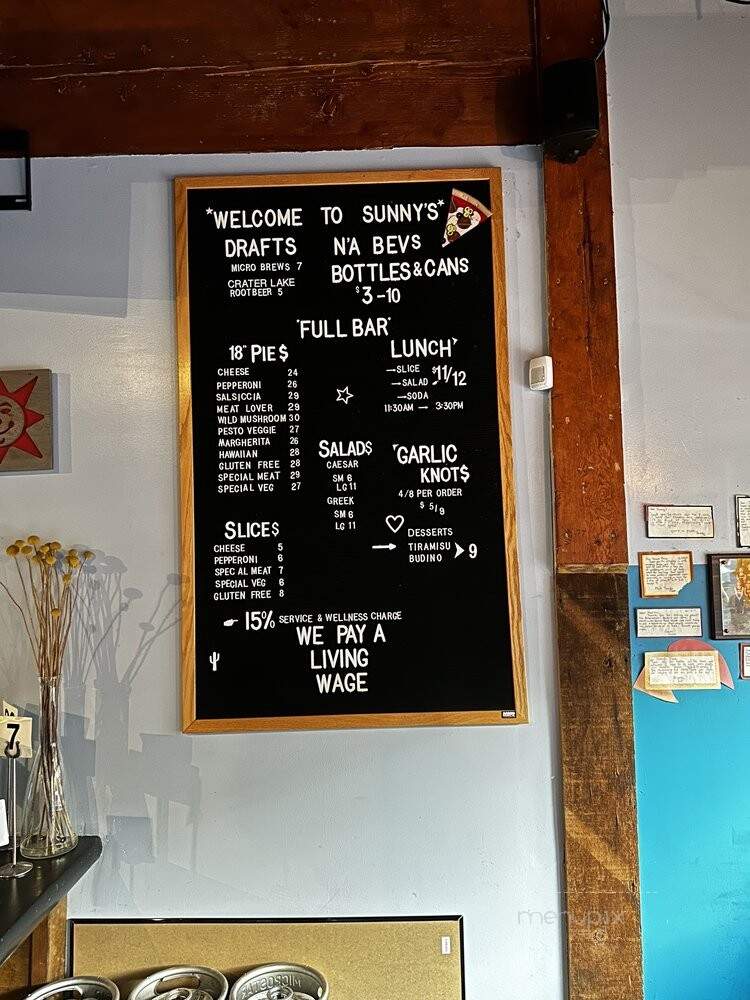 *WELCOME TO SUNNY'S*
DRAFTS
MICRO BREWS 7
CRATER LAKE
ROOTBEER 5
N'A BEVS
BOTTLES & CANS
$3-10
"FULL BAR"
18" PIE$
CHEESE 24
PEPPERONI 26
SALSICCIA 29
MEAT LOVER 29
WILD MUSHROOM 30
PESTO VEGGIE 27
MARGHERITA 26
HAWAIIAN 28
GLUTEN FREE 28
SPECIAL MEAT 29
SPECIAL VEG 27
LUNCH
SLICE $11/12
SALAD
SODA
11:30AM — 3:30PM
SALAD$
CAESAR
SM 6
LG 11
GREEK
SM 6
LG 11
GARLIC
KNOT$
4/8 PER ORDER
$ 5/9
DESSERTS
TIRAMISU
BUDINO 9
SLICE$
CHEESE 5
PEPPERONI 6
SPEC AL MEAT 7
SPECIAL VEG 6
GLUTEN FREE 8
15% SERVICE & WELLNESS CHARGE
WE PAY A
LIVING
WAGE
7
MICROSTAR
menupix